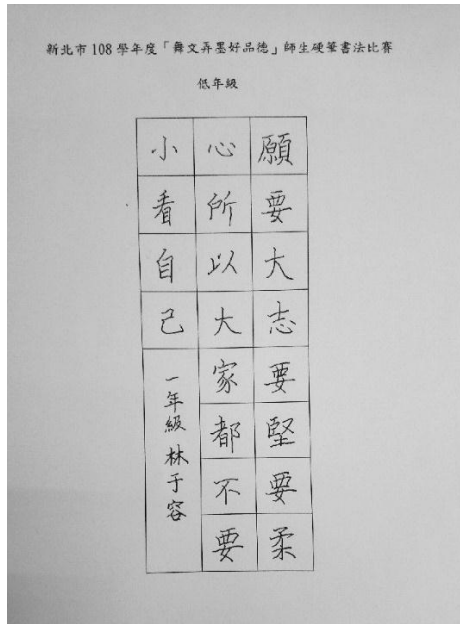 新北市108學年度「舞文弄墨好品德」師生硬筆書法比賽
低年級
願要大志要堅要柔
心所以大家都不要
小看自己
一年級 林于容